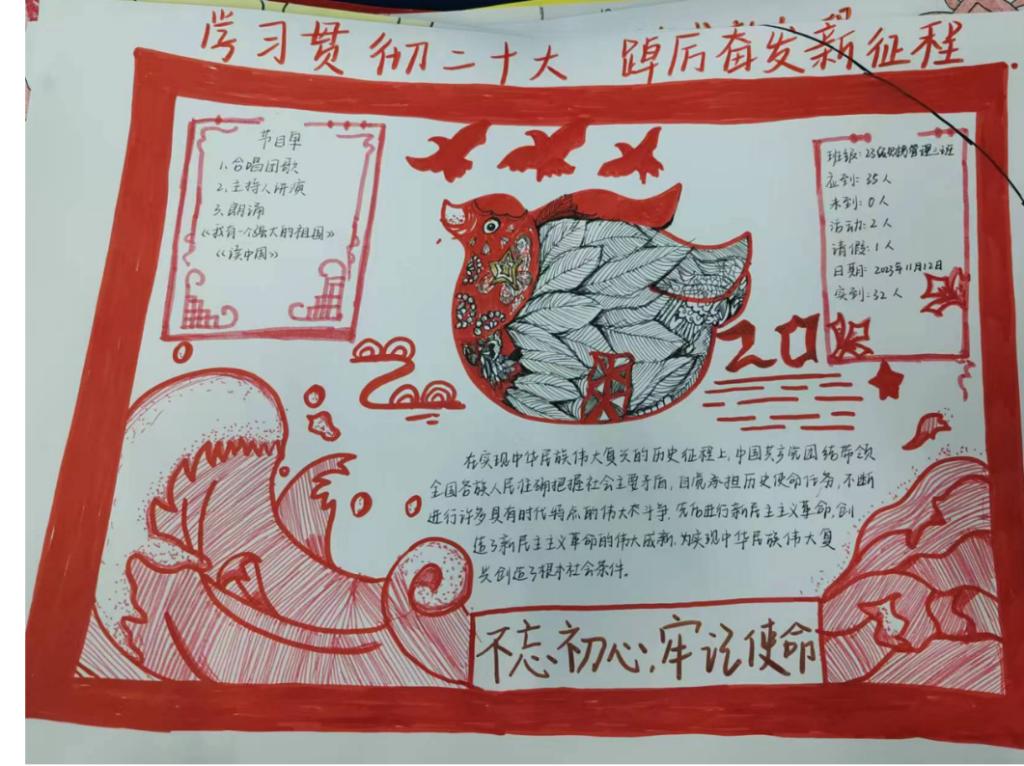 学习贯彻二十大 踔厉奋发新征程
节目单
1.合唱团歌
2.主持人讲演
3.朗诵
《我有一个强大的祖国》
《读中国》
应到:35人
未到:0人
活动:2人
请假:1人
日期:2023年11月12日
实到:32人
20
在实现中华民族伟大复兴的历史征程上,中国共产党团结带领
全国各族人民准确把握社会主要矛盾,自觉承担历史使命任务,不断
进行许多具有时代特点的伟大斗争,先后进行新民主主义革命,创
造了新民主主义革命的伟大成就,为实现中华民族伟大复
兴创造了根本社会条件。
不忘初心,牢记使命